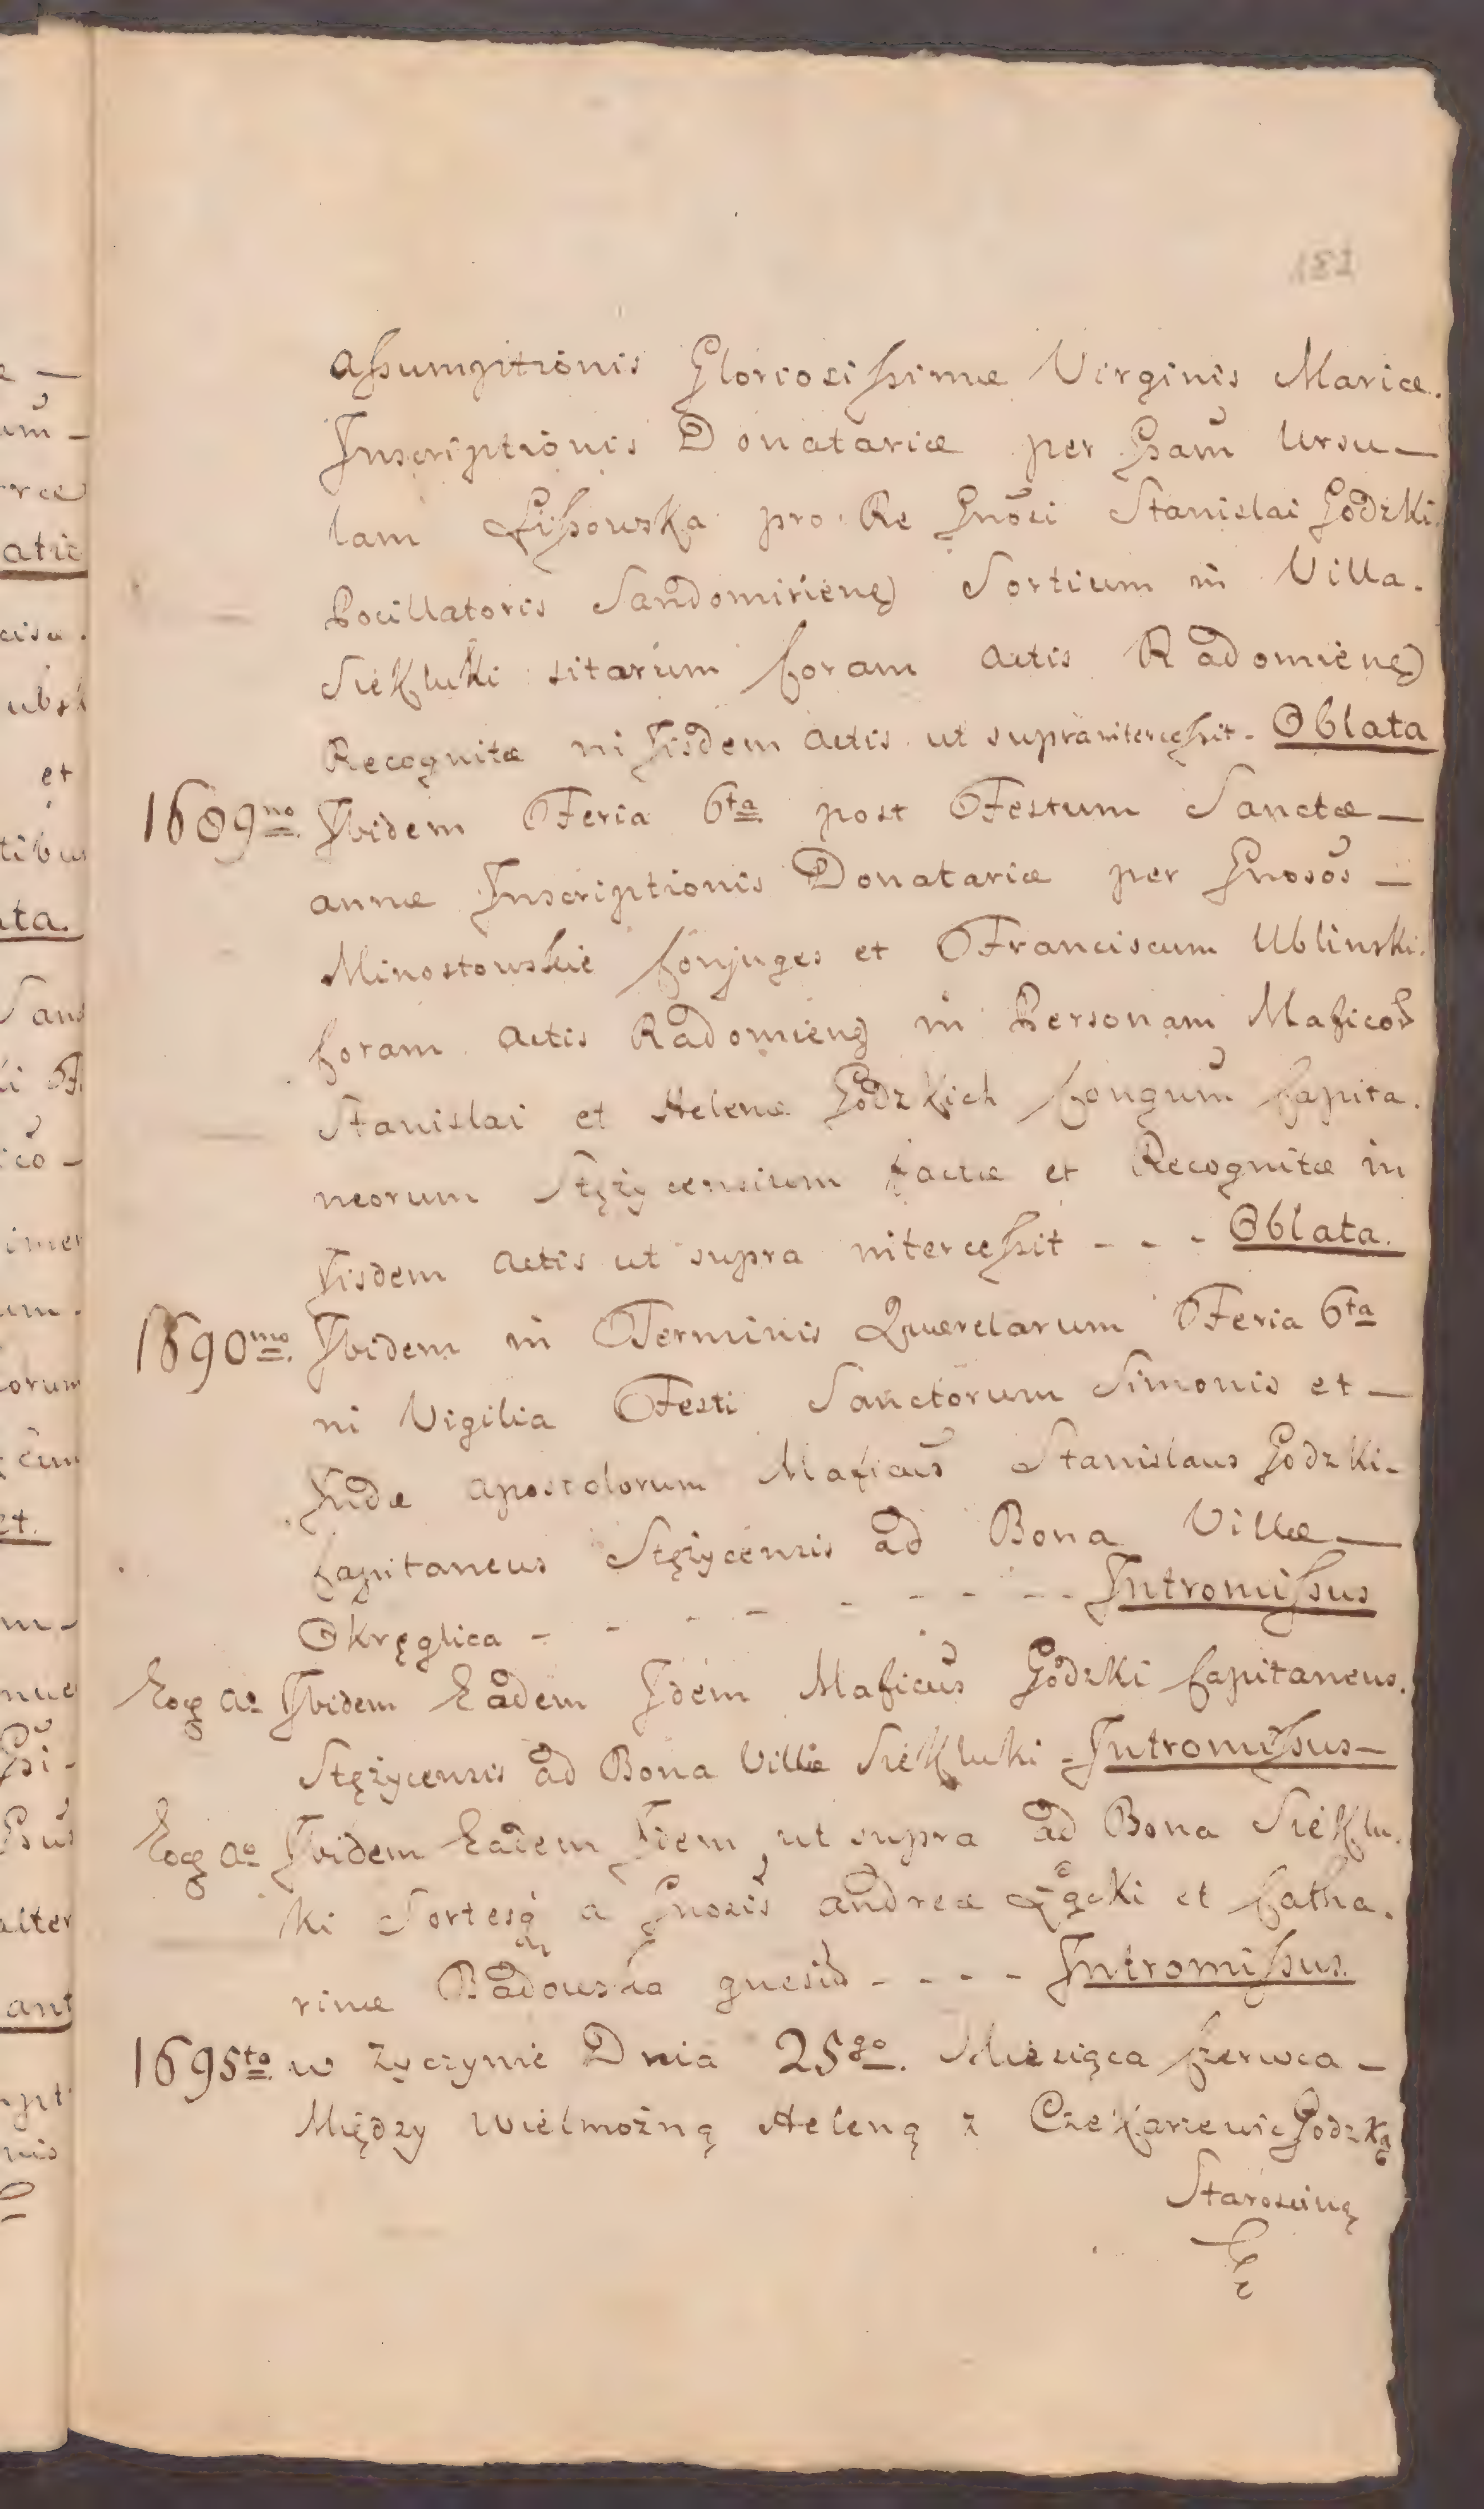 Assumptionis Gloriosissimæ Virginis Mariæ.
Inscriptionis Donatariæ per Gsam Ursu-
lam Lissowska pro Re Gnosi Stanislai Godzki
Pocillatoris Sandomirieng Sortium in Villa.
Siekluki sitarum Coram Actis Radomieng
Recognitæ in Iisdem Actis ut supra intercessit. Oblata
1689no. Ibidem Feria 6ta post Festum Sanctæ -
Annæ Inscriptionis Donatariæ per Gnosos -
Minostowskie Conjuges et Franciscum Ublinski.
Coram Actis Radomieng in Personam Maficor
Stanislai et Helenæ Godzkich Congum Capita.
neorum Stężycensium factæ et Recognitæ in
Iisdem Actis ut supra intercessit - - - Oblata.
1690mo. Ibidem in Terminis Querelarum Feria 6ta
in Vigilia Festi Sanctorum Simonis et -
Judæ Apostolorum Maficus Stanislaus Godzki-
Capitaneus Stężycensis ad Bona Villæ -
Okręglica - - - - - - - - Intromissus
Eoq Ao Ibidem Eadem Idem Maficus Godzki Capitaneus.
Stężycensis ad Bona Villæ Siekluki - Intromissus -
Eoq Ao Ibidem Eadem Idem ut supra ad Bona Sieklu.
ki Sortesq a Gnosis Andreæ Łącki et Catha.
rinæ Badowska quesid - - - - Intromissus.
1695to w Życzynie Dnia 25go. Miesiąca Czerwca -
Między Wielmożną Heleną z Czekarzewic Godzką
Starosciną